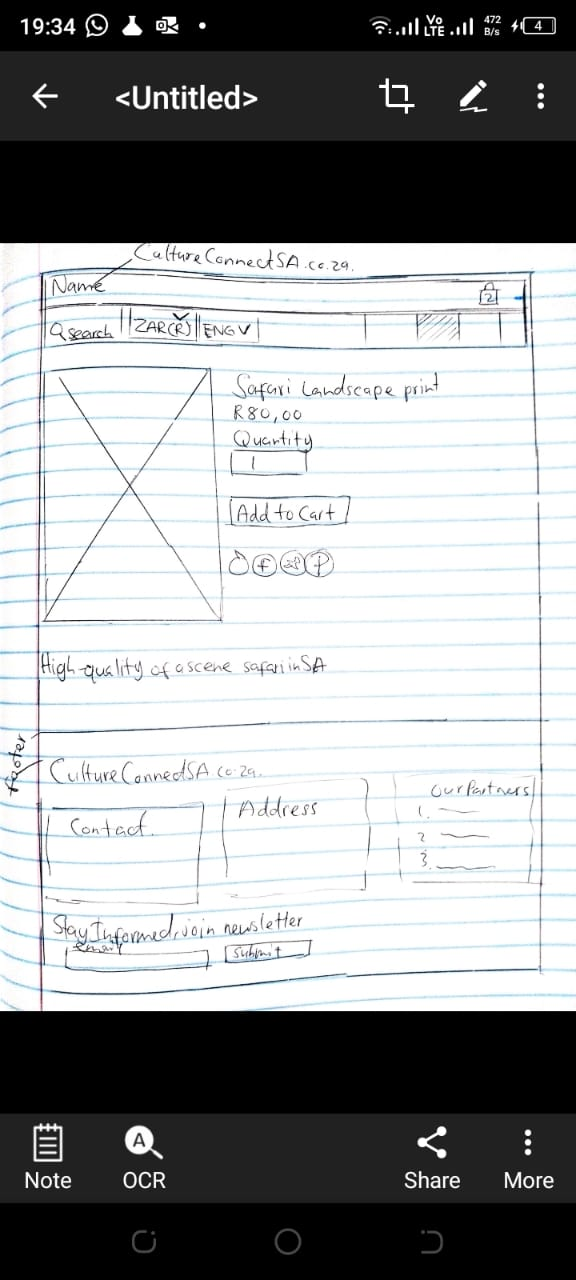 19:34
Vo LTE
472 B/s
4
<Untitled>
CultureConnectSA.co.za.
Name
2
Q search ZAR(R) ENG V
Safari Landscape print
R80,00
Quantity
1
Add to Cart
f P
High-quality of a scene safari in SA
footer
CultureConnectSA.co.za.
Contact.
Address
Our Partners
1.
2
3.
Stay Informed, join newsletter
email
Submit
A
Note OCR Share More